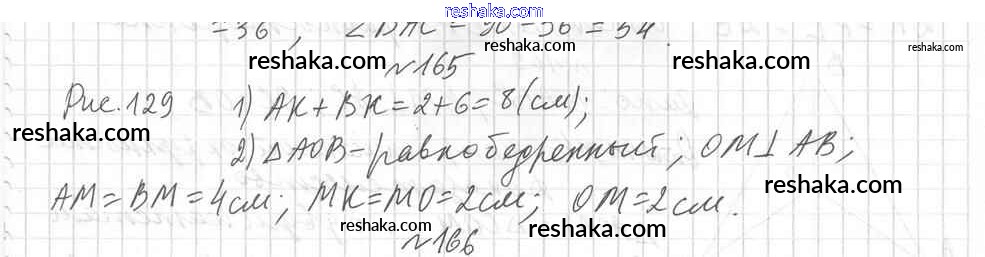 reshaka.com
= 36, ∠BAC = 90 - 36 = 54.
reshaka.com
reshaka.com
reshaka.com
№165
reshaka.com
Рис. 129 1) AK + BK = 2 + 6 = 8 (см);
reshaka.com
reshaka.com
2) △AOB - равнобедренный; OM⊥AB;
reshaka.com
AM = BM = 4 см; MK = MO = 2 см; OM = 2 см.
reshaka.com
reshaka.com
№166
reshaka.com